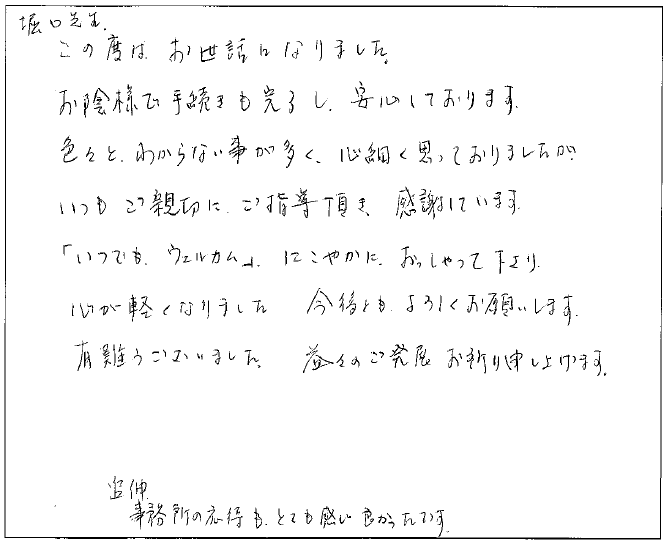 堀口先生.
この度は お世話になりました。
お陰様で 手続きも完了し、安心しております。
色々と、わからない事が多く、心細く思っておりましたが
いつも ご親切に ご指導頂き 感謝しています。
「いつでも、ウェルカム」、にこやかに、おっしゃって下さり、
心が軽くなりました 今後とも よろしくお願いします。
有難うございました。 益々のご発展 お祈り申し上げます。
追伸
事務所の応待も、とても感じ良かったです。